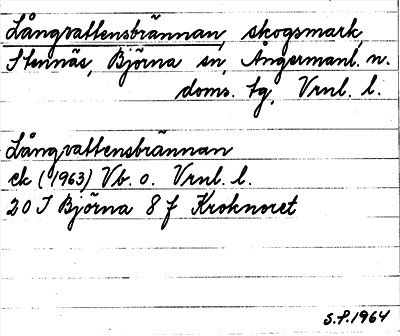 Långvattensbrännan, skogsmark,
Stennäs, Björna sn, Ångermanl. n.
doms. tg, Vrnl. l.
Långvattensbrännan
ek (1963) Vb. o. Vrnl. l.
20 I Björna 8 f Kroknoret
S.P. 1964